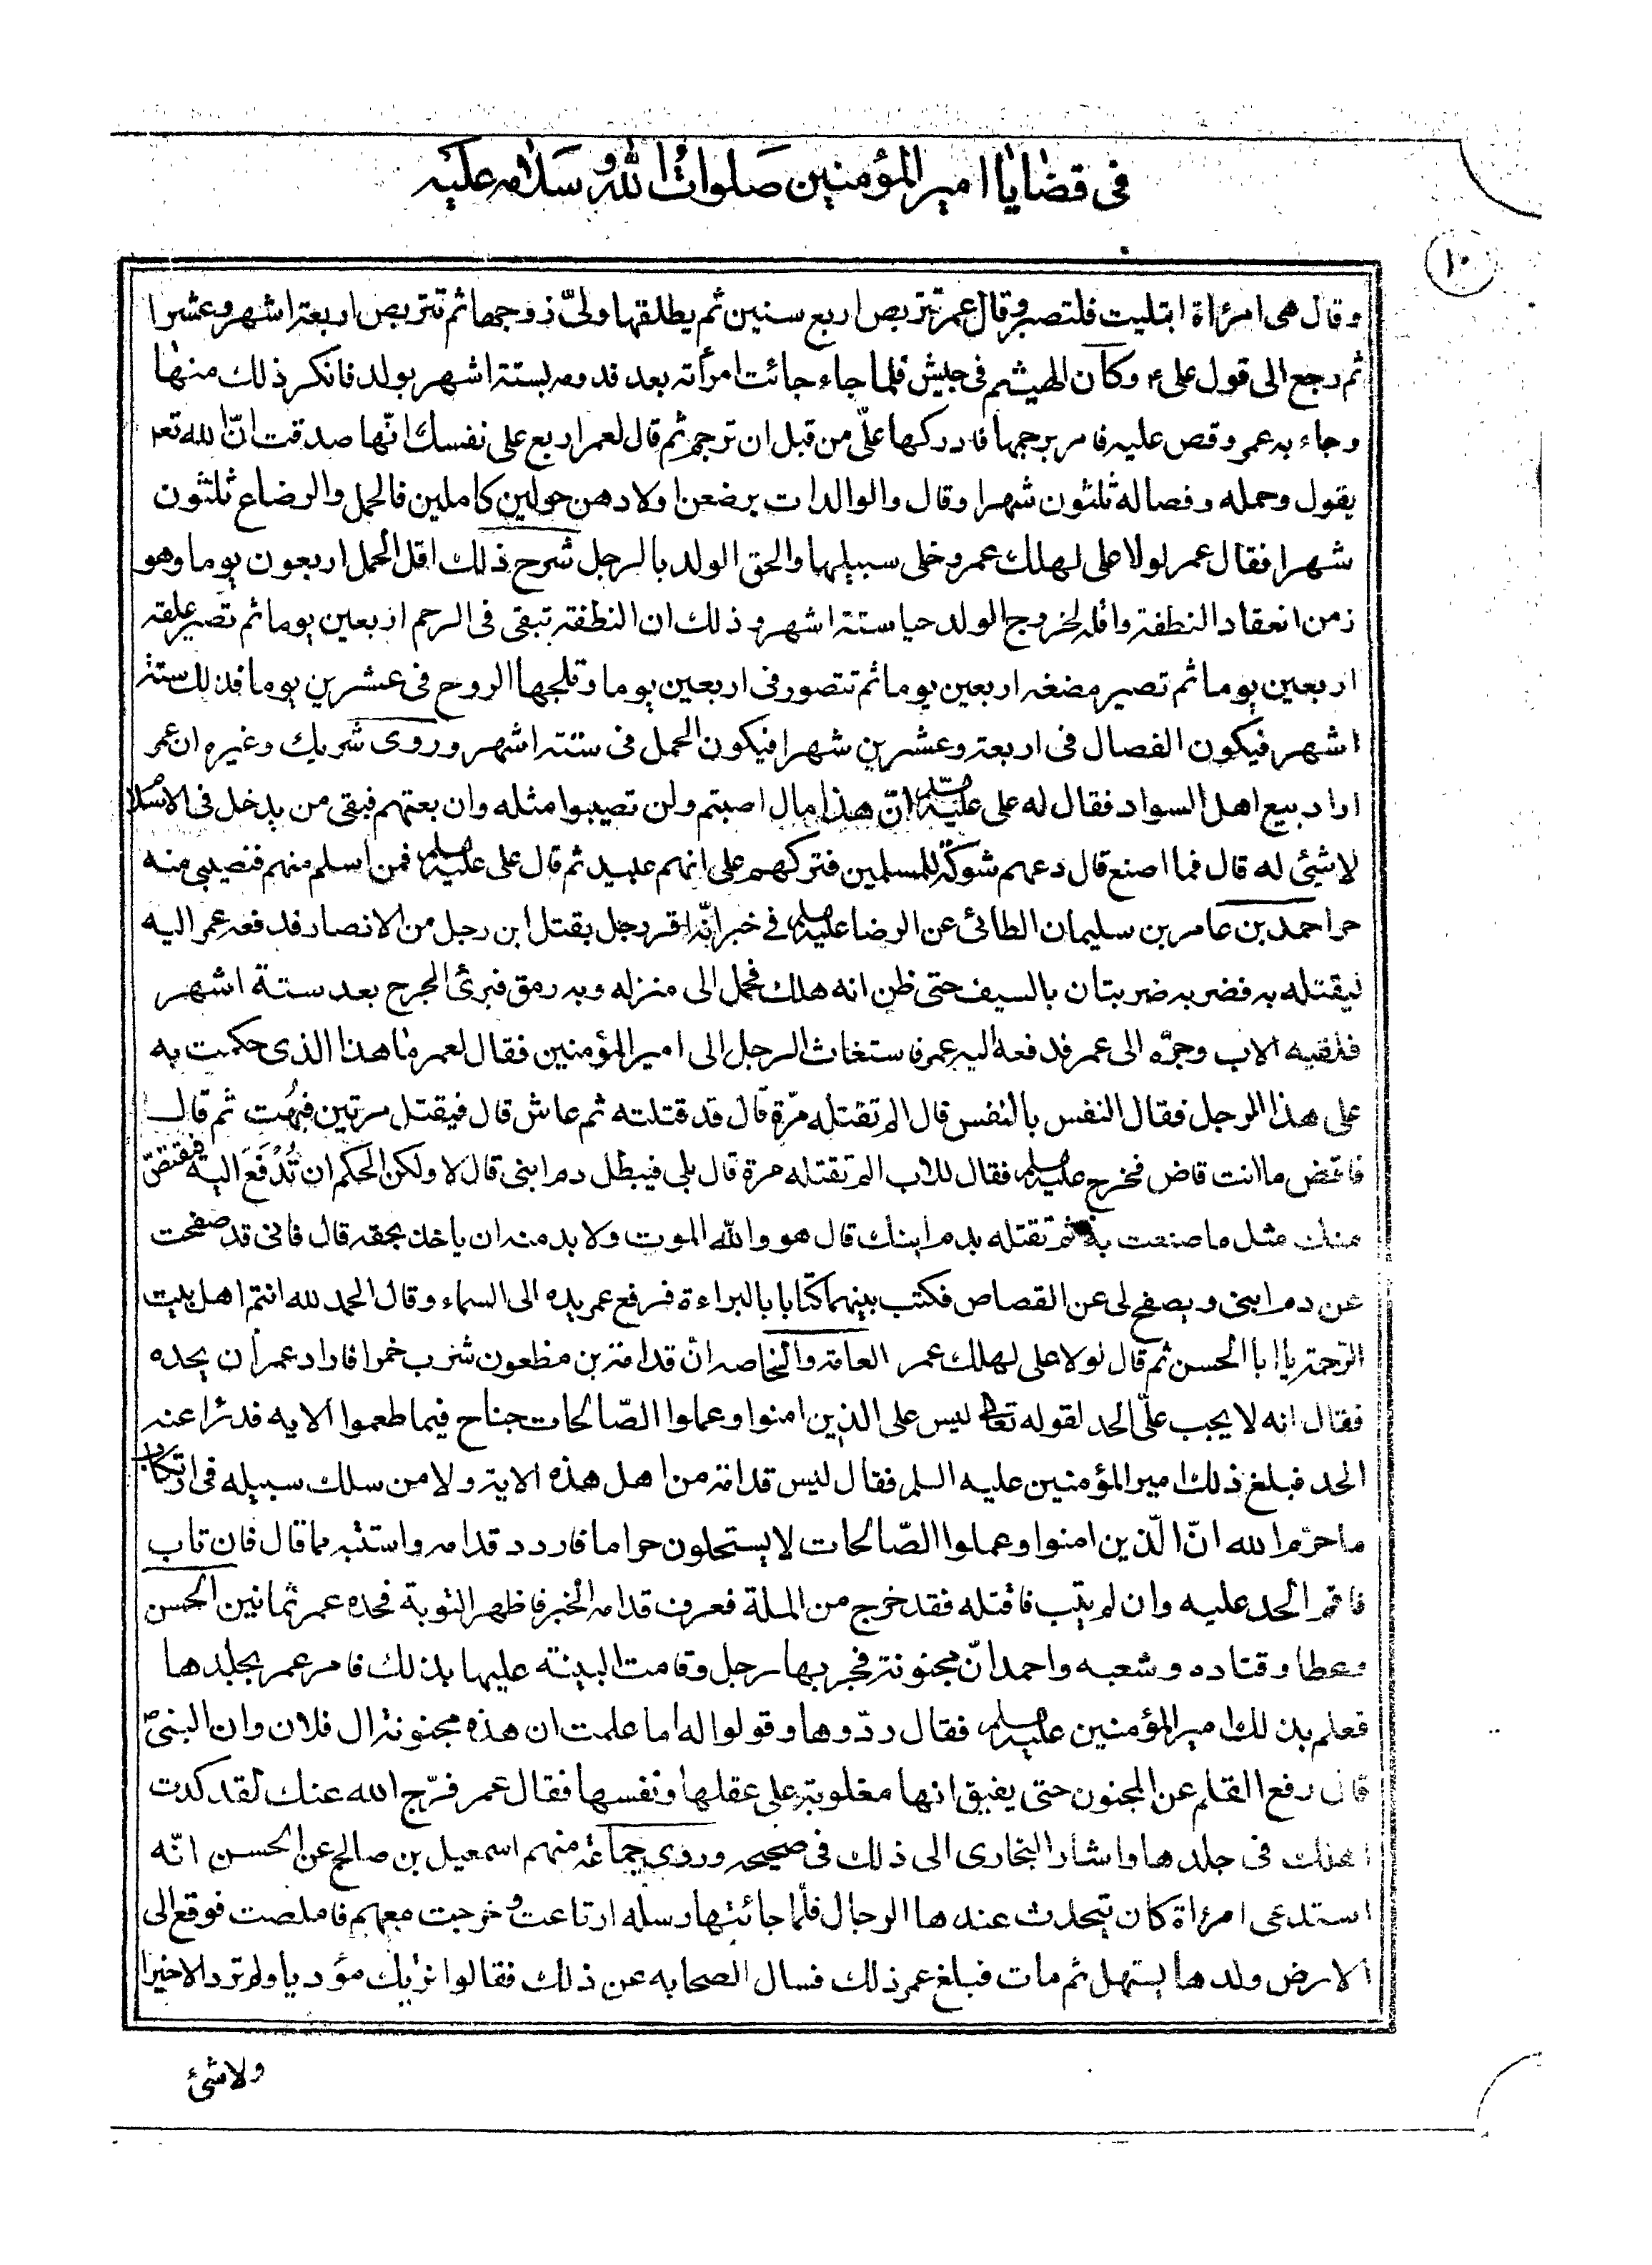 فى قضايا امير المؤمنين صلوات الله و سلامه عليه
١٠
وقال هى امرأة ابتليت فلتصبر وقال عمر تتربص اربع سنين ثم يطلقها ولىّ زوجها ثم تتربص اربعة اشهر وعشرا
ثم رجع الى قول على ع وكان الهيثم فى جيش فلما جاء جائت امرأته بعد قدومه بستة اشهر بولد فانكر ذلك منها
وجاء به عمر وقص عليه فامر برجمها فادركها علىّ من قبل ان ترجم ثم قال لعمر اربع على نفسك انّها صدقت انّ الله تعا
يقول وحمله وفصاله ثلثون شهرا وقال والوالدات يرضعن اولادهن حولين كاملين فالحمل والرضاع ثلثون
شهرا فقال عمر لولا على لهلك عمر وخلى سبيلها والحق الولد بالرجل شرح ذلك اقل الحمل اربعون يوما وهو
زمن انعقاد النطفة واقله لخروج الولد حيا ستة اشهر وذلك ان النطفة تبقى فى الرحم اربعين يوما ثم تصير علقة
اربعين يوما ثم تصير مضغه اربعين يوما ثم تتصور فى اربعين يوما وتلجها الروح فى عشرين يوما فذلك ستة
اشهر فيكون الفصال فى اربعة وعشرين شهرا فيكون الحمل فى ستة اشهر وروى شريك وغيره ان عمر
اراد بيع اهل السواد فقال له على عليه السلم انّ هذا مال اصبتم ولن تصيبوا مثله وان بعتهم فبقى من يدخل فى الاسلام
لا شيئ له قال فما اصنع قال دعهم شوكة للمسلمين فتركهم على انهم عبيد ثم قال على عليه السلم فمن اسلم منهم فنصيبى منه
حر احمد بن عامر بن سليمان الطائى عن الرضا عليه السلم فى خبر انّه اقر رجل بقتل ابن رجل من الانصار فدفعه عمر اليه
ليقتله به فضربه ضربتان بالسيف حتى ظن انه هلك فحمل الى منزله وبه رمق فبرئ الجرح بعد ستة اشهر
فلقيه الاب وجرّه الى عمر فدفعه اليه عمر فاستغاث الرجل الى امير المؤمنين فقال لعمر ما هذا الذى حكمت به
على هذا الرجل فقال النفس بالنفس قال الم تقتله مرّة قال قد قتلته ثم عاش قال فيقتل مرتين فبُهت ثم قال
فاقض ما انت قاض فخرج عليه السلم فقال للاب الم تقتله مرة قال بلى فيبطل دم ابنى قال لا ولكن الحكم ان تُدْفَعَ اليه فيقتصّ
منك مثل ما صنعت به ثم تقتله بدم ابنك قال هو والله الموت ولا بد منه ان ياخذ بحقه قال فانى قد صفحت
عن دم ابنى ويصفح لى عن القصاص فكتب بينهما كتابا بالبراءة فرفع عمر يده الى السماء وقال الحمد لله انتم اهل بيت
الرّحمة يا ابا الحسن ثم قال لولا على لهلك عمر العامة والخاصه انّ قدامة بن مظعون شرب خمرا فاراد عمر أن يحده
فقال انه لا يجب علىّ الحد لقوله تعالى ليس على الذين امنوا وعملوا الصّالحات جناح فيما طعموا الايه فدرأ عنه
الحد فبلغ ذلك امير المؤمنين عليه السلم فقال ليس قدامة من اهل هذه الاية ولا من سلك سبيله فى ارتكاب
ما حرّم الله انّ الّذين امنوا وعملوا الصّالحات لا يستحلون حراما فاردد قدامه واستتبه مما قال فان تاب
فاقم الحد عليه وان لم يتب فاقتله فقد خرج من الملة فعرف قدامه الخبر فاظهر التوبة فحده عمر ثمانين الحسن
وعطا وقتاده وشعبه واحمد انّ مجنونة فجر بها رجل وقامت البينة عليها بذلك فامر عمر بجلدها
فعلم بذلك امير المؤمنين عليه السلم فقال ردّوها وقولوا له اما علمت ان هذه مجنونة ال فلان وان النبىّ ص
قال رفع القلم عن المجنون حتى يفيق انها مغلوبة على عقلها ونفسها فقال عمر فرّج الله عنك لقد كدت
اهلك فى جلدها واشار البخارى الى ذلك فى صحيحه وروى جماعة منهم اسمعيل بن صالح عن الحسن انّه
استدعى امرأة كان يتحدث عندها الرجال فلمّا جائتها رسله ارتاعت وخرجت معهم فاملصت فوقع الى
الارض ولدها يستهل ثم مات فبلغ عمر ذلك فسال الصحابه عن ذلك فقالوا نريك مؤديا ولم ترد الا خيرا
ولا شئ